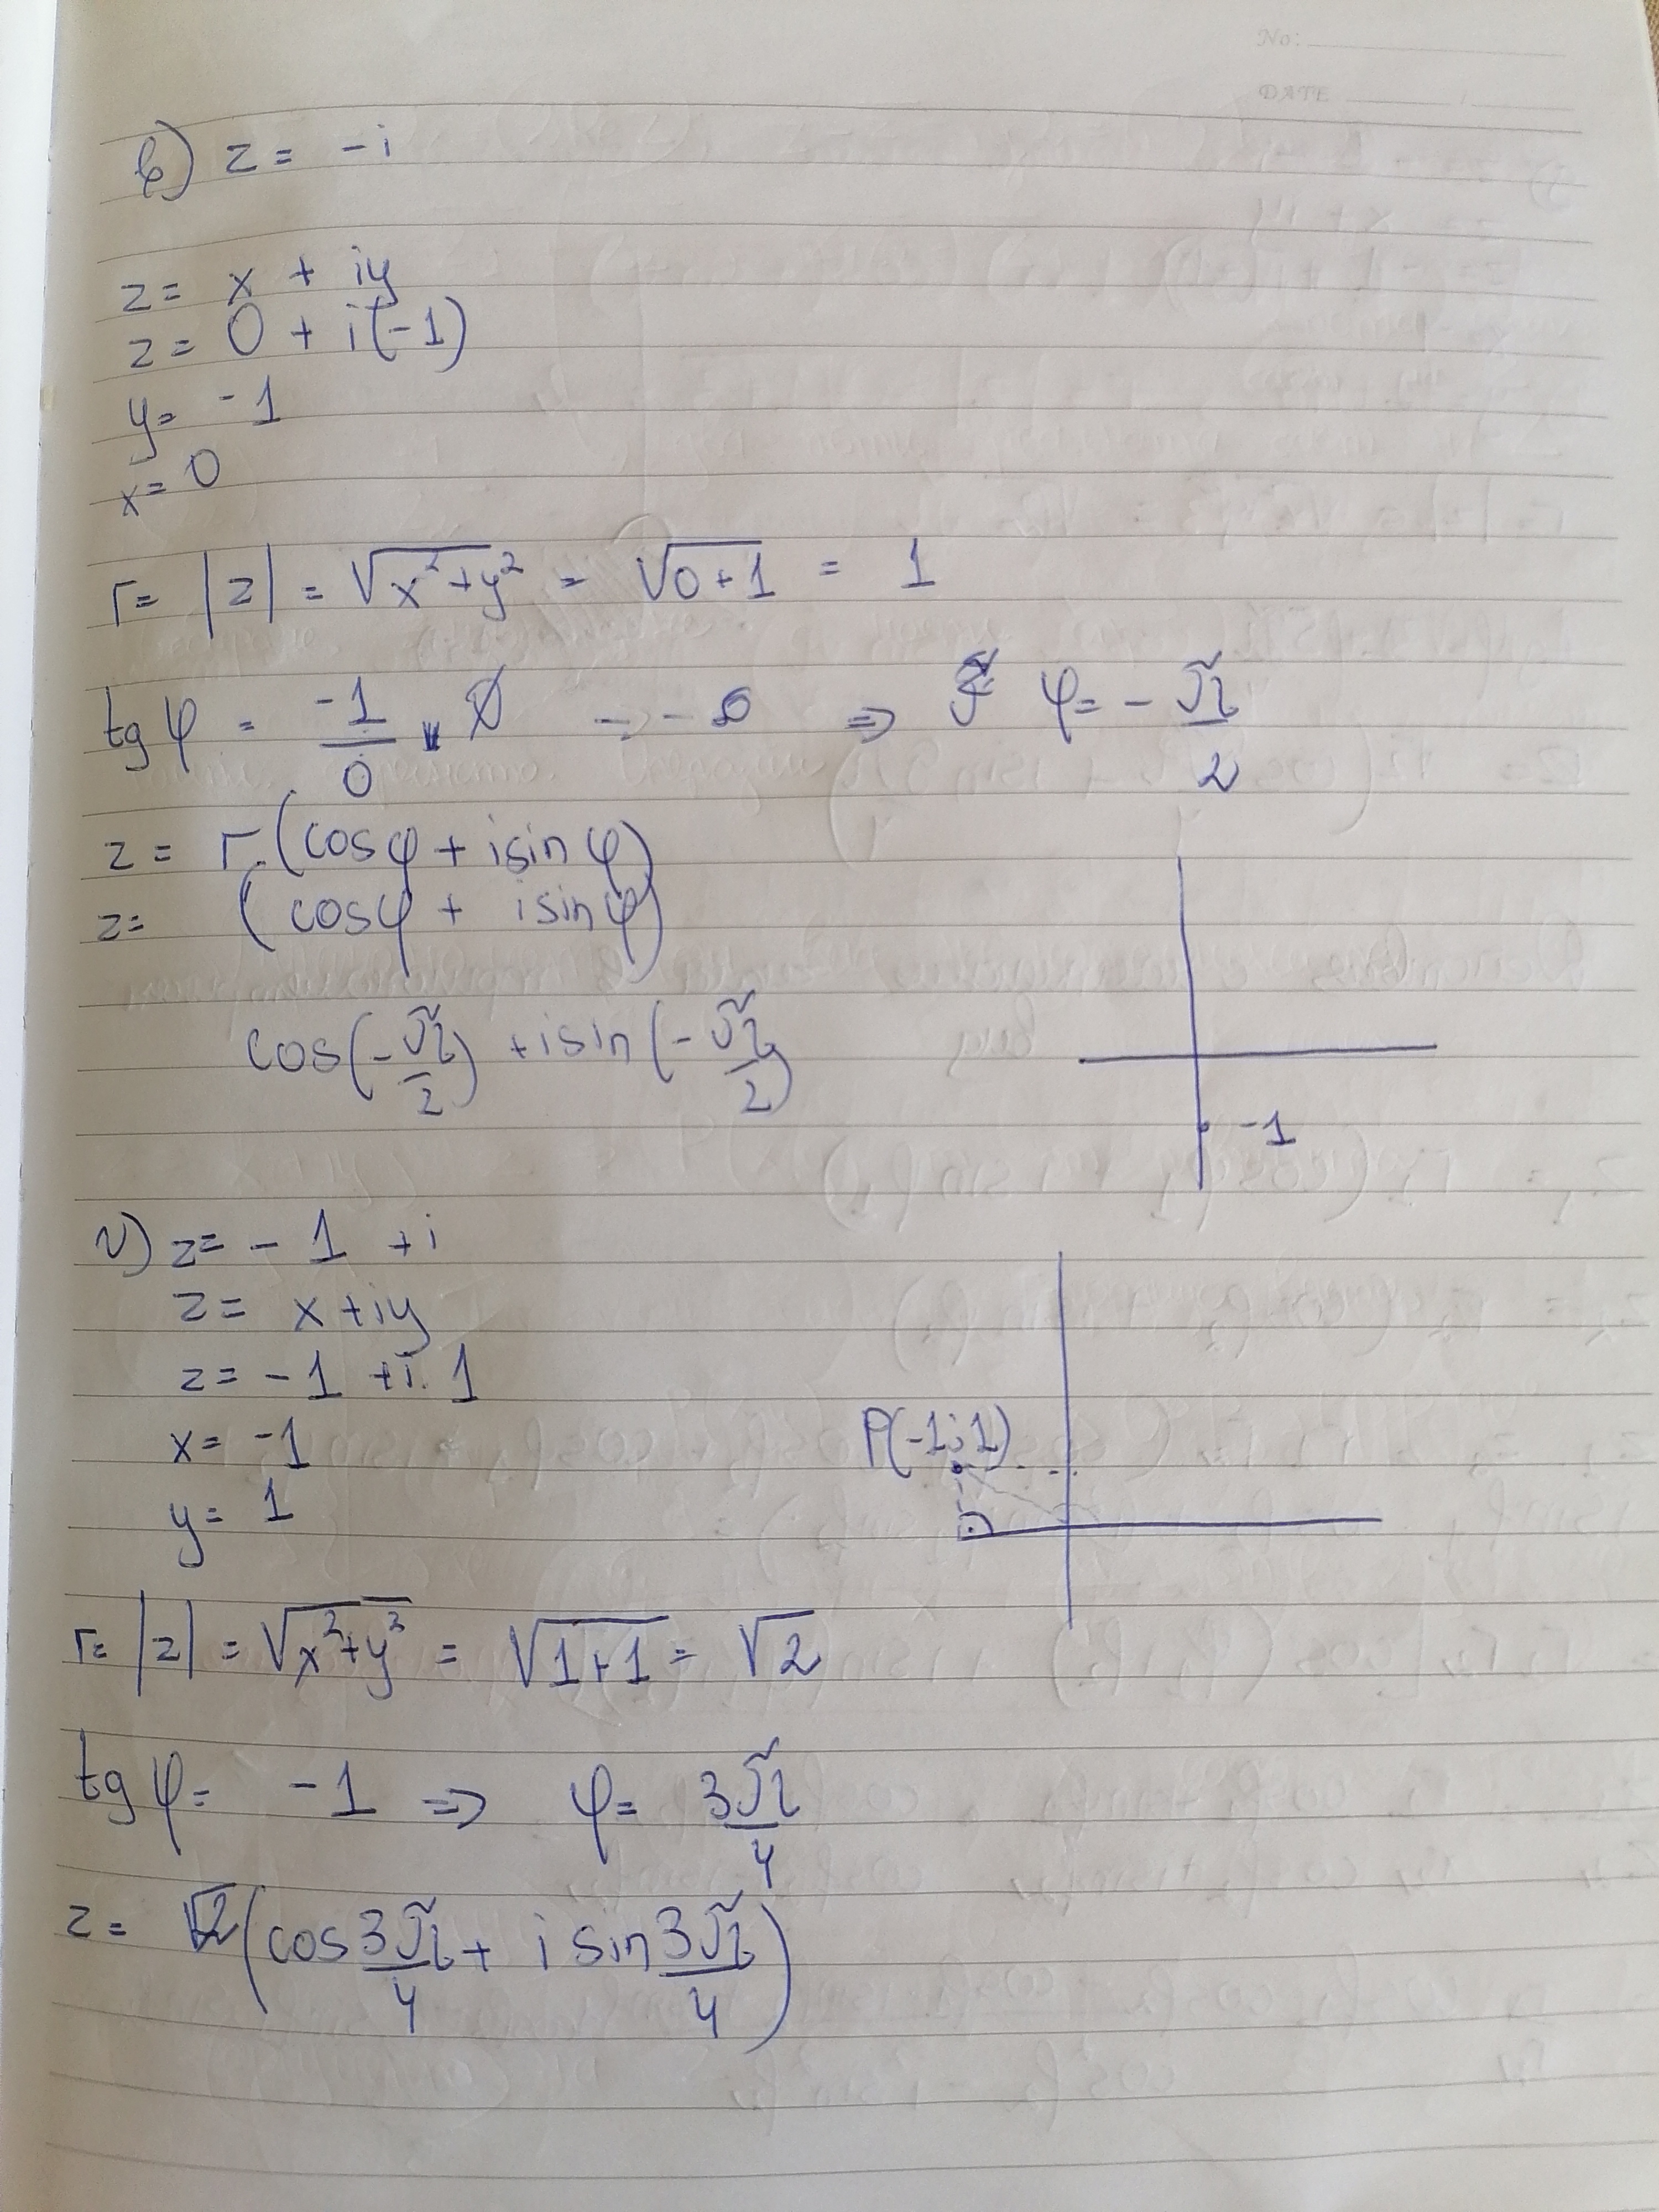 No:
DATE
в) z = -i
z = x + iy
z = 0 + i(-1)
y = -1
x = 0
r = |z| = √(x²+y²) = √(0+1) = 1
tg φ = -1/0 → -∞ ⇒ φ = -π/2
z = r.(cosφ + isinφ)
z = (cosφ + isinφ)
cos(-π/2) + isin(-π/2)
-1
г) z = -1 + i
z = x + iy
z = -1 + i.1
x = -1
P(-1;1)
y = 1
r = |z| = √(x²+y²) = √(1+1) = √2
tg φ = -1 ⇒ φ = 3π/4
z = √2(cos 3π/4 + i sin 3π/4)